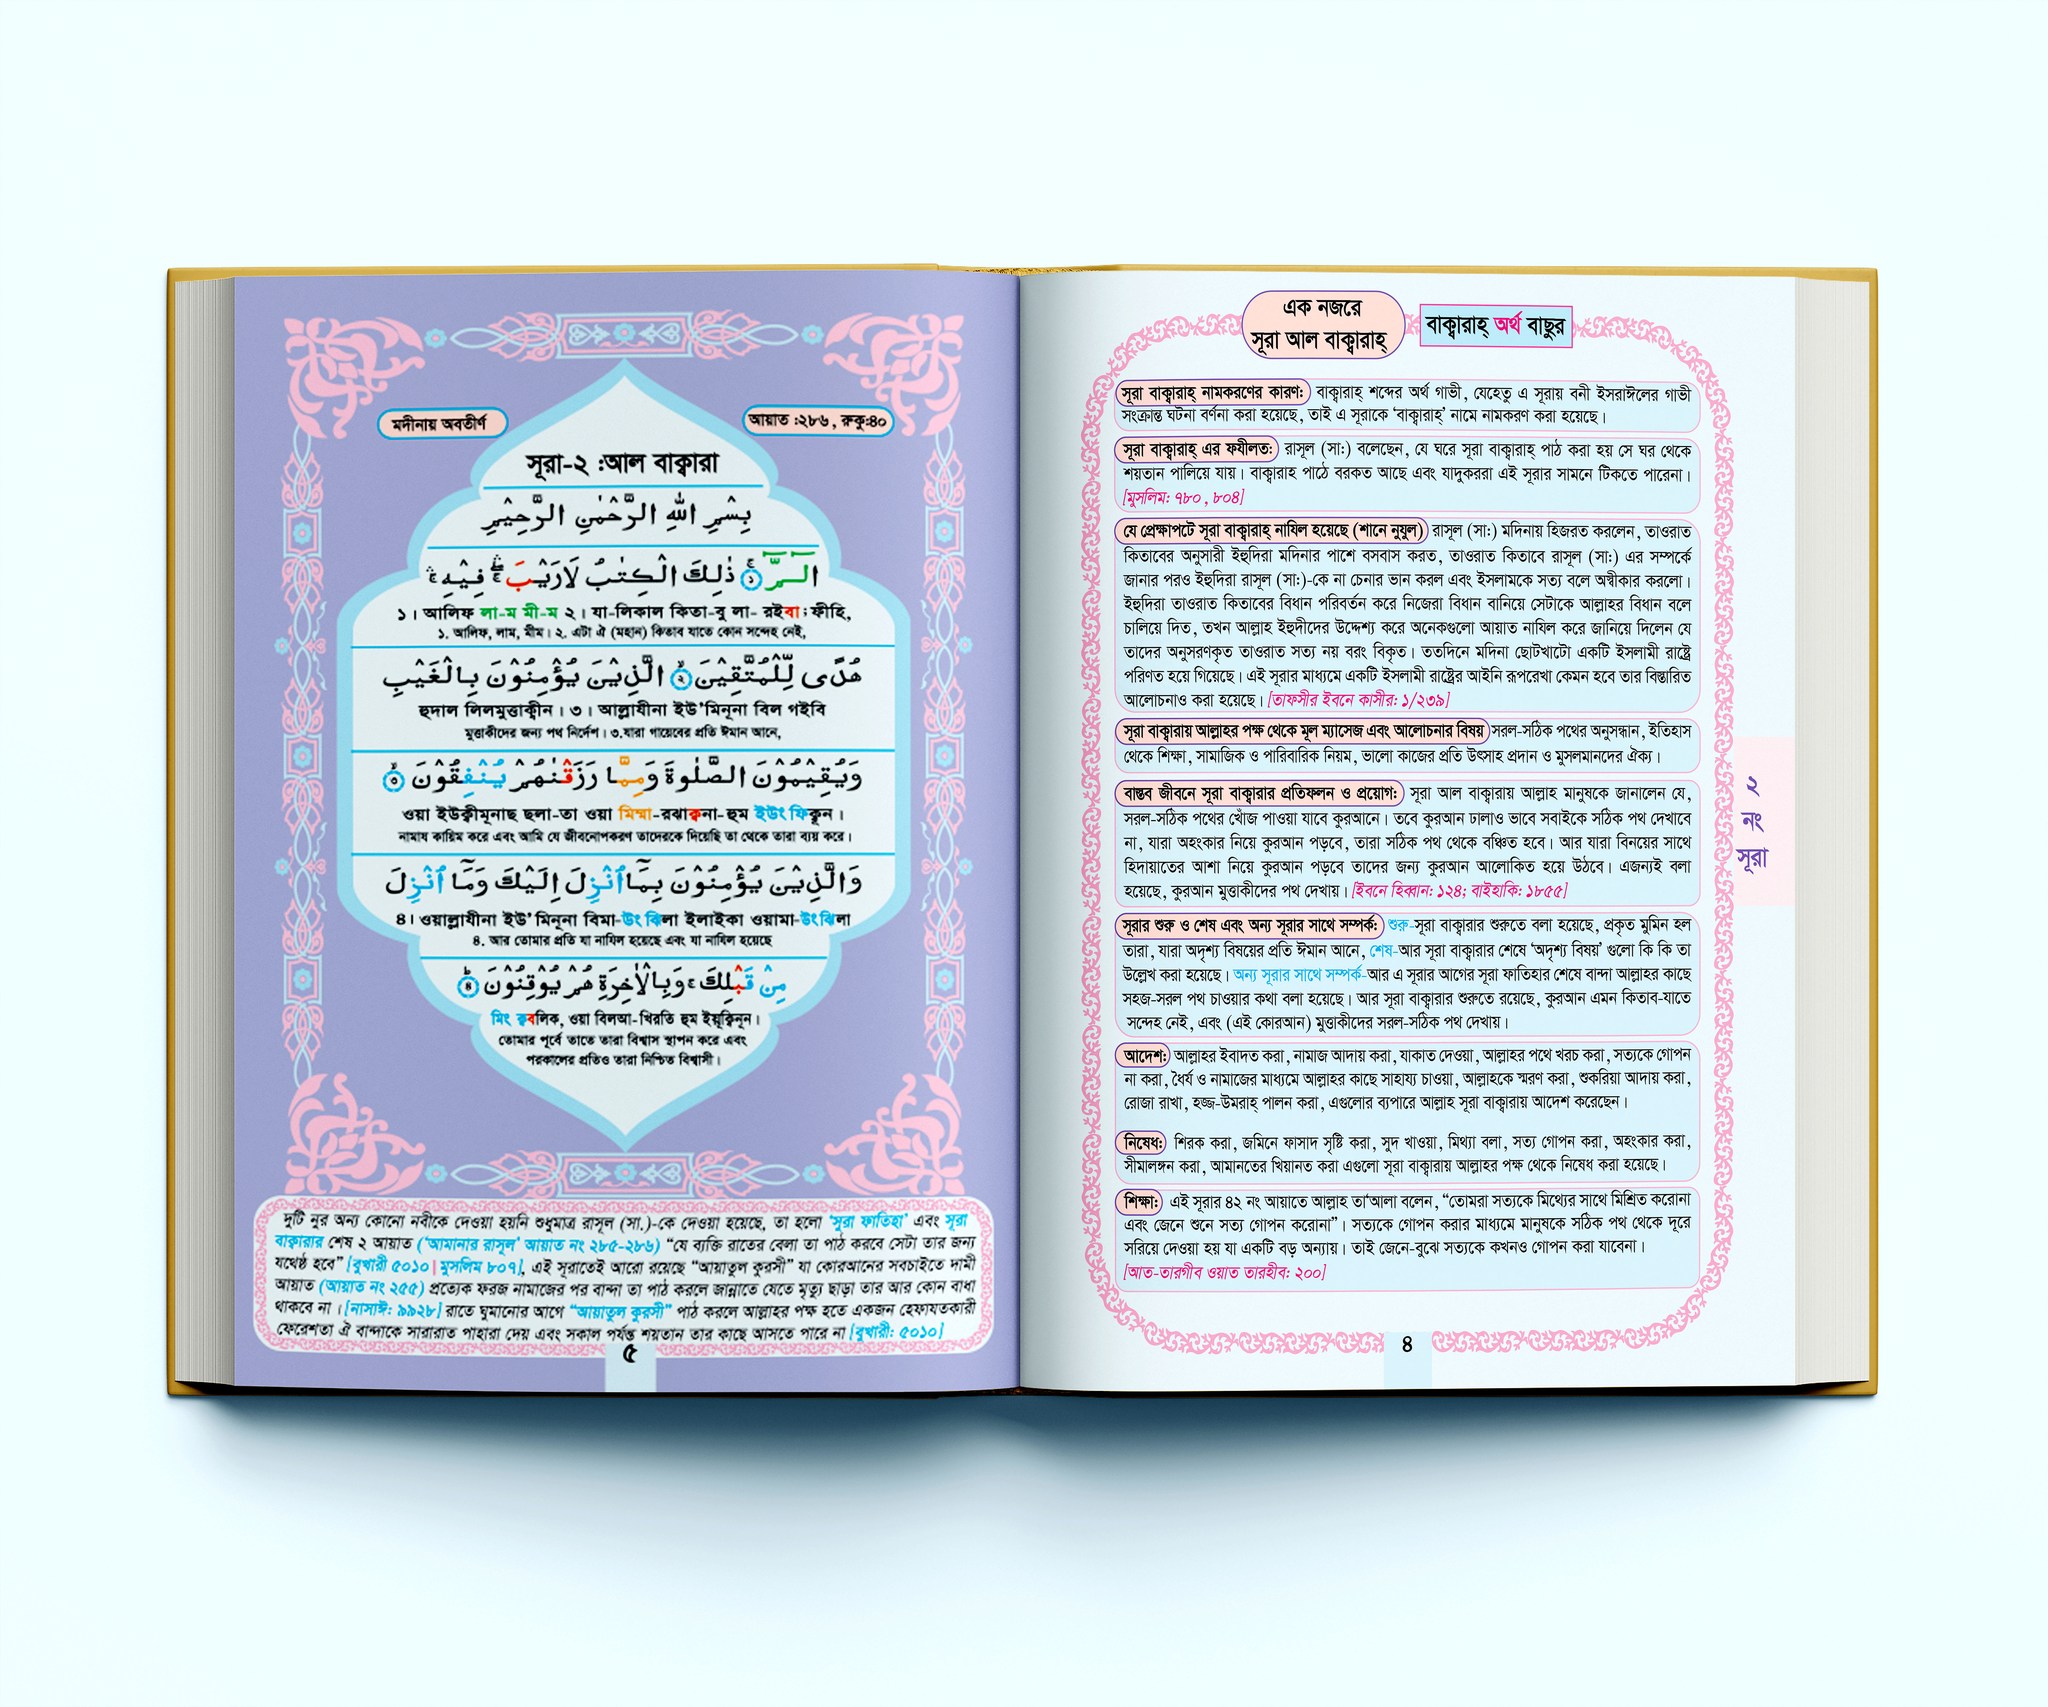 এক নজরে
সূরা আল বাক্বারাহ্
বাক্বারাহ্ অর্থ বাছুর
সূরা বাক্বারাহ্ নামকরণের কারণ: বাক্বারাহ্ শব্দের অর্থ গাভী, যেহেতু এ সূরায় বনী ইসরাঈলের গাভী
সংক্রান্ত ঘটনা বর্ণনা করা হয়েছে, তাই এ সূরাকে ‘বাক্বারাহ্’ নামে নামকরণ করা হয়েছে।
সূরা বাক্বারাহ্ এর ফযীলত: রাসূল (সা:) বলেছেন, যে ঘরে সূরা বাক্বারাহ্ পাঠ করা হয় সে ঘর থেকে
শয়তান পালিয়ে যায়। বাক্বারাহ পাঠে বরকত আছে এবং যাদুকররা এই সূরার সামনে টিকতে পারেনা।
[মুসলিম: ৭৮০, ৮০৪]
যে প্রেক্ষাপটে সূরা বাক্বারাহ্ নাযিল হয়েছে (শানে নুযুল) রাসূল (সা:) মদিনায় হিজরত করলেন, তাওরাত
কিতাবের অনুসারী ইহুদিরা মদিনার পাশে বসবাস করত, তাওরাত কিতাবে রাসূল (সা:) এর সম্পর্কে
জানার পরও ইহুদিরা রাসূল (সা:)-কে না চেনার ভান করল এবং ইসলামকে সত্য বলে অস্বীকার করলো।
ইহুদিরা তাওরাত কিতাবের বিধান পরিবর্তন করে নিজেরা বিধান বানিয়ে সেটাকে আল্লাহর বিধান বলে
চালিয়ে দিত, তখন আল্লাহ ইহুদীদের উদ্দেশ্য করে অনেকগুলো আয়াত নাযিল করে জানিয়ে দিলেন যে
তাদের অনুসরণকৃত তাওরাত সত্য নয় বরং বিকৃত। ততদিনে মদিনা ছোটখাটো একটি ইসলামী রাষ্ট্রে
পরিণত হয়ে গিয়েছে। এই সূরার মাধ্যমে একটি ইসলামী রাষ্ট্রের আইনি রূপরেখা কেমন হবে তার বিস্তারিত
আলোচনাও করা হয়েছে। [তাফসীর ইবনে কাসীর: ১/২৩৯]
সূরা বাক্বারায় আল্লাহর পক্ষ থেকে মূল ম্যাসেজ এবং আলোচনার বিষয় সরল-সঠিক পথের অনুসন্ধান, ইতিহাস
থেকে শিক্ষা, সামাজিক ও পারিবারিক নিয়ম, ভালো কাজের প্রতি উৎসাহ প্রদান ও মুসলমানদের ঐক্য।
বাস্তব জীবনে সূরা বাক্বারার প্রতিফলন ও প্রয়োগ: সূরা আল বাক্বারায় আল্লাহ মানুষকে জানালেন যে,
সরল-সঠিক পথের খোঁজ পাওয়া যাবে কুরআনে। তবে কুরআন ঢালাও ভাবে সবাইকে সঠিক পথ দেখাবে
না, যারা অহংকার নিয়ে কুরআন পড়বে, তারা সঠিক পথ থেকে বঞ্চিত হবে। আর যারা বিনয়ের সাথে
হিদায়াতের আশা নিয়ে কুরআন পড়বে তাদের জন্য কুরআন আলোকিত হয়ে উঠবে। এজন্যই বলা
হয়েছে, কুরআন মুত্তাকীদের পথ দেখায়। [ইবনে হিব্বান: ১২৪; বাইহাকি: ১৮৫৫]
সূরার শুরু ও শেষ এবং অন্য সূরার সাথে সম্পর্ক: শুরু-সূরা বাক্বারার শুরুতে বলা হয়েছে, প্রকৃত মুমিন হল
তারা, যারা অদৃশ্য বিষয়ের প্রতি ঈমান আনে, শেষ-আর সূরা বাক্বারার শেষে ‘অদৃশ্য বিষয়’ গুলো কি কি তা
উল্লেখ করা হয়েছে। অন্য সূরার সাথে সম্পর্ক-আর এ সূরার আগের সূরা ফাতিহার শেষে বান্দা আল্লাহর কাছে
সহজ-সরল পথ চাওয়ার কথা বলা হয়েছে। আর সূরা বাক্বারার শুরুতে রয়েছে, কুরআন এমন কিতাব-যাতে
সন্দেহ নেই, এবং (এই কোরআন) মুত্তাকীদের সরল-সঠিক পথ দেখায়।
আদেশ: আল্লাহর ইবাদত করা, নামাজ আদায় করা, যাকাত দেওয়া, আল্লাহর পথে খরচ করা, সত্যকে গোপন
না করা, ধৈর্য ও নামাজের মাধ্যমে আল্লাহর কাছে সাহায্য চাওয়া, আল্লাহকে স্মরণ করা, শুকরিয়া আদায় করা,
রোজা রাখা, হজ্জ-উমরাহ্ পালন করা, এগুলোর ব্যপারে আল্লাহ সূরা বাক্বারায় আদেশ করেছেন।
নিষেধ: শিরক করা, জমিনে ফাসাদ সৃষ্টি করা, সুদ খাওয়া, মিথ্যা বলা, সত্য গোপন করা, অহংকার করা,
সীমালঙ্গন করা, আমানতের খিয়ানত করা এগুলো সূরা বাক্বারায় আল্লাহর পক্ষ থেকে নিষেধ করা হয়েছে।
শিক্ষা: এই সূরার ৪২ নং আয়াতে আল্লাহ তা‘আলা বলেন, “তোমরা সত্যকে মিথ্যের সাথে মিশ্রিত করোনা
এবং জেনে শুনে সত্য গোপন করোনা”। সত্যকে গোপন করার মাধ্যমে মানুষকে সঠিক পথ থেকে দূরে
সরিয়ে দেওয়া হয় যা একটি বড় অন্যায়। তাই জেনে-বুঝে সত্যকে কখনও গোপন করা যাবেনা।
[আত-তারগীব ওয়াত তারহীব: ২০০]
২
নং
সূরা
৪
মদীনায় অবতীর্ণ
আয়াত :২৮৬, রুকু:৪০
সূরা-২ :আল বাক্বারা
بِسْمِ اللهِ الرَّحْمٰنِ الرَّحِيْمِ
الٓـمّٓ ۚ﴿١﴾ ذٰلِكَ الْكِتٰبُ لَارَيْبَ ۛۖ فِيْهِ ۛۚ
১। আলিফ লা-ম মী-ম ২। যা-লিকাল কিতা-বু লা- রইবা; ফীহি,
১. আলিফ, লাম, মীম। ২. এটা ঐ (মহান) কিতাব যাতে কোন সন্দেহ নেই,
هُدًى لِّلْمُتَّقِيْنَ ۙ﴿٢﴾ الَّذِيْنَ يُؤْمِنُوْنَ بِالْغَيْبِ
হুদাল লিলমুত্তাক্বীন। ৩। আল্লাযীনা ইউ’মিনূনা বিল গইবি
মুত্তাকীদের জন্য পথ নির্দেশ। ৩.যারা গায়েবের প্রতি ঈমান আনে,
وَيُقِيْمُوْنَ الصَّلٰوةَ وَمِمَّا رَزَقْنٰهُمْ يُنْفِقُوْنَ ۙ﴿٣﴾
ওয়া ইউক্বীমূনাছ ছলা-তা ওয়া মিম্মা-রঝাক্বনা-হুম ইউং ফিকূন।
নামায কায়িম করে এবং আমি যে জীবনোপকরণ তাদেরকে দিয়েছি তা থেকে তারা ব্যয় করে।
وَالَّذِيْنَ يُؤْمِنُوْنَ بِمَآ اُنْزِلَ اِلَيْكَ وَمَآ اُنْزِلَ
৪। ওয়াল্লাযীনা ইউ’মিনূনা বিমা-উং ঝিলা ইলাইকা ওয়ামা-উংঝিলা
৪. আর তোমার প্রতি যা নাযিল হয়েছে এবং যা নাযিল হয়েছে
مِنْ قَبْلِكَ ۚ وَبِالْاٰخِرَةِ هُمْ يُوْقِنُوْنَ ؕ﴿٤﴾
মিং ক্ববলিক, ওয়া বিলআ-খিরতি হুম ইয়ূক্বিনূন।
তোমার পূর্বে তাতে তারা বিশ্বাস স্থাপন করে এবং
পরকালের প্রতিও তারা নিশ্চিত বিশ্বাসী।
দুটি নুর অন্য কোনো নবীকে দেওয়া হয়নি শুধুমাত্র রাসূল (সা.)-কে দেওয়া হয়েছে, তা হলো ‘সূরা ফাতিহা’ এবং সূরা
বাক্বারার শেষ ২ আয়াত (‘আমানার রাসূল’ আয়াত নং ২৮৫-২৮৬) “যে ব্যক্তি রাতের বেলা তা পাঠ করবে সেটা তার জন্য
যথেষ্ঠ হবে” [বুখারী ৫০১০| মুসলিম ৮০৭], এই সূরাতেই আরো রয়েছে “আয়াতুল কুরসী” যা কোরআনের সবচাইতে দামী
আয়াত (আয়াত নং ২৫৫) প্রত্যেক ফরজ নামাজের পর বান্দা তা পাঠ করলে জান্নাতে যেতে মৃত্যু ছাড়া তার আর কোন বাধা
থাকবে না । [নাসাঈ: ৯৯২৮] রাতে ঘুমানোর আগে “আয়াতুল কুরসী” পাঠ করলে আল্লাহর পক্ষ হতে একজন হেফাযতকারী
ফেরেশতা ঐ বান্দাকে সারারাত পাহারা দেয় এবং সকাল পর্যন্ত শয়তান তার কাছে আসতে পারে না [বুখারী: ৫০১০]
৫